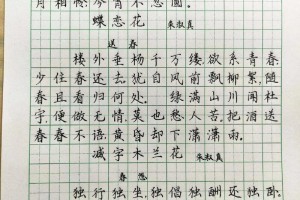 月相怜今宵不忍圆。
蝶恋花 朱淑真
送春
楼外垂杨千万缕,欲系青春,
少住春还去。犹自风前飘柳絮,随
春且看归何处。 绿满山川闻杜
宇,便做无情,莫也愁人苦。把酒送
春春不语,黄昏却下潇潇雨。
减字木兰花 朱淑真
春怨
独行独坐,独倡独酬还独卧。